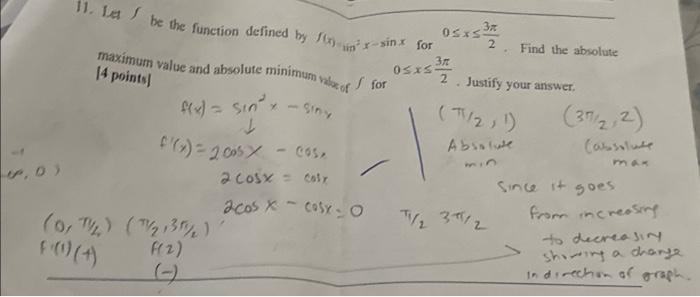 11. Let f be the function defined by f(x)=sin² x – sin x for 0 ≤ x ≤ 3π/2 . Find the absolute
maximum value and absolute minimum value of f for 0 ≤ x ≤ 3π/2 . Justify your answer.
[4 points]
f(x) = sin² x - sin x
↓
f'(x) = 2cos x - cos x
2cos x = cos x
2cos x - cos x = 0
π/2 3π/2
, 0)
(0, π/2) (π/2, 3π/2)
f'(1) (+) f(2)
(-)
(π/2, 1) (3π/2, 2)
Absolute (absolute
min max
Since it goes
from increasing
to decreasing
showing a change
in direction of graph.